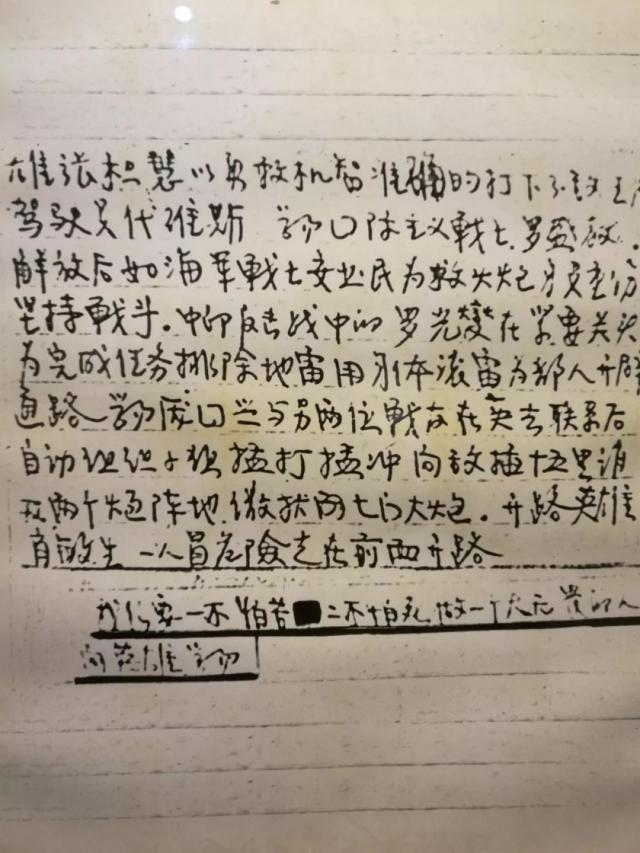 雄张积慧以勇敢机智准确的打下了敌王
驾驶员代维斯 学习口际主义戦士罗盛教.
解放后如海军戦士安业民为救火炮身
坚持戦斗.中印反击战中的罗光燮在紧要关头
为完成任务排除地雷用身体滚雷为部人开
通路学习庞口兰与另两位戦友在失去联系后
自动组织小组猛打猛冲向敌插十五里
两个炮阵地缴获两七门大炮.开路英雄
一人冒危險走在前面开路
我们要一不怕苦二不怕死做一个大无畏的人
向英雄学习